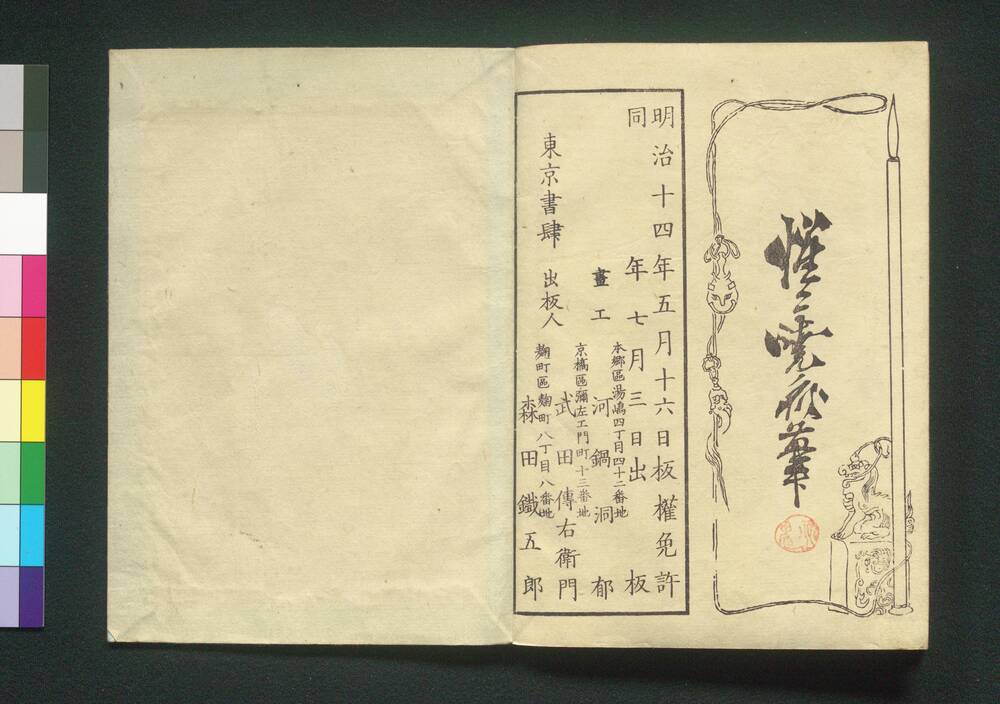 惺々暁斎筆
明治十四年五月十六日板權免許
同年七月三日出板
本郷區湯嶋四丁目四十二番地
畫工 河鍋洞郁
京橋區彌左エ門町十三番地
武田傳右衛門
東京書肆 出板人
麹町區麹町八丁目八番地
森田鐵五郎